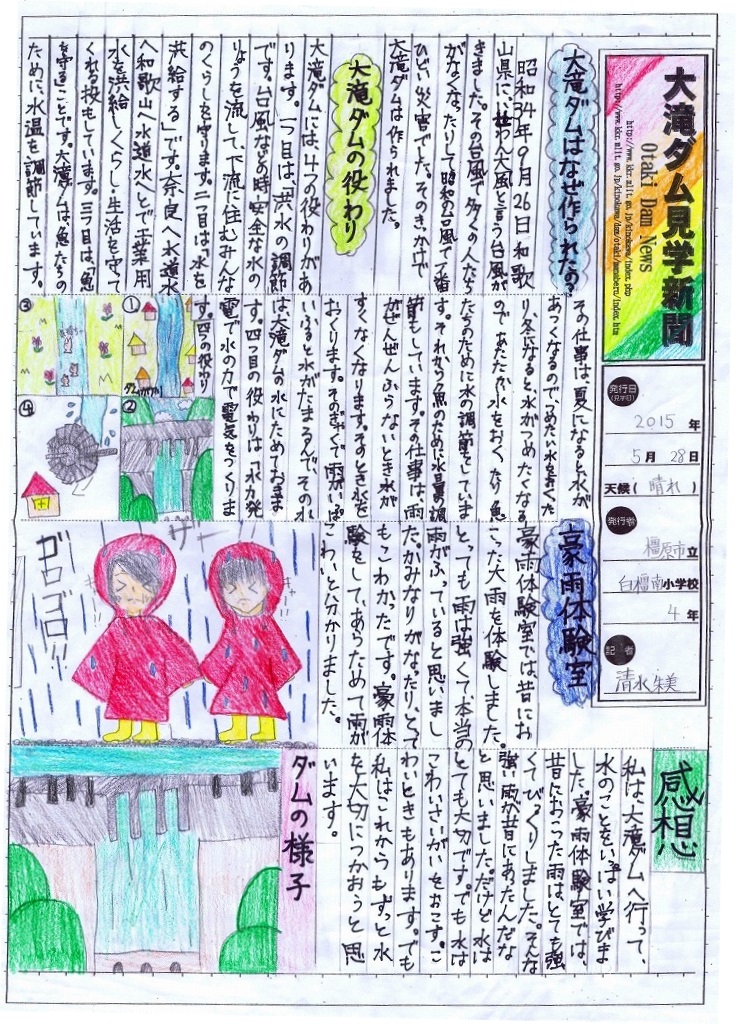 大滝ダム見学新聞
Otaki Dam News
http://www.kkr.mlit.go.jp/kinokawa/index.php
http://www.kkr.mlit.go.jp/kinokawa/dam/otaki/manaberu/index.htm
発行日
(見学日)
2015 年
5月 28日
天候( 晴れ )
発行者
橿原市立
白橿南小学校
4 年
記者
清水朱美
大滝ダムはなぜ作られたの?
昭和34年9月26日和歌
山県にい勢わん大風と言う台風が
きました。その台風で多くの人たち
がなくなったりして昭和の台風で1番
ひどい災害でした。そのきっかけで
大滝ダムは作られました。
大滝ダムの役わり
大滝ダムには、4つの役わりがあ
ります。一つ目は、「洪水の調節
です。台風などの時安全な水の
りょうを流して、下流に住むみんな
のくらしを守ります。二つ目は「水を
共給する」です。奈良へ水道水
へ和歌山へ水道水へとで工業用
水を洪給しくらし・生活を守って
くれる役もしています。三つ目は、「魚
を守る」ことです。大滝ダムは魚たちの
ために、水温を調節しています。
その仕事は夏になると水が
あつくなるので、つめたい水をおくった
り冬になると水がつめたくなる
ので、あたたかい水をおくったり魚
たちのために水の調節をしていま
す。それから魚のために水量の調
節もしています。その仕事は、雨
がぜんぜんふらないとき水が
すくなくなります。そのとき水を
おくります。そのぎゃくで雨がいっぱ
いふると水がたまるんで、それ
は大滝ダムの水にためておきま
す。四つ目の役わりは「水力発
電で水の力で電気をつくりま
す。四の役わり
①
②
③
④
豪雨体験室
豪雨体験室では、昔にお
こった大雨を体験しました。
とっても雨は強くて、本当の
雨がふっていると思いまし
たかみなりがなったり、とって
もこわかったです。豪雨体
験をして、あらためて雨が
こわいと分かりました。
ザー
ゴロゴロ!!
感想
私は、大滝ダムへ行って、
水のことをいっぱい学びま
した。豪雨体験室では、
昔におこった雨は、とても強
くてびっくりしました。そんな
強い雨が昔にあたんだな
と思いました。だけど水は
とても大切です。でも水は
こわいさいがいをおこす。こ
わいときもあります。でも
私はこれからもずっと水
を大切につかおうと思
います。
ダムの様子